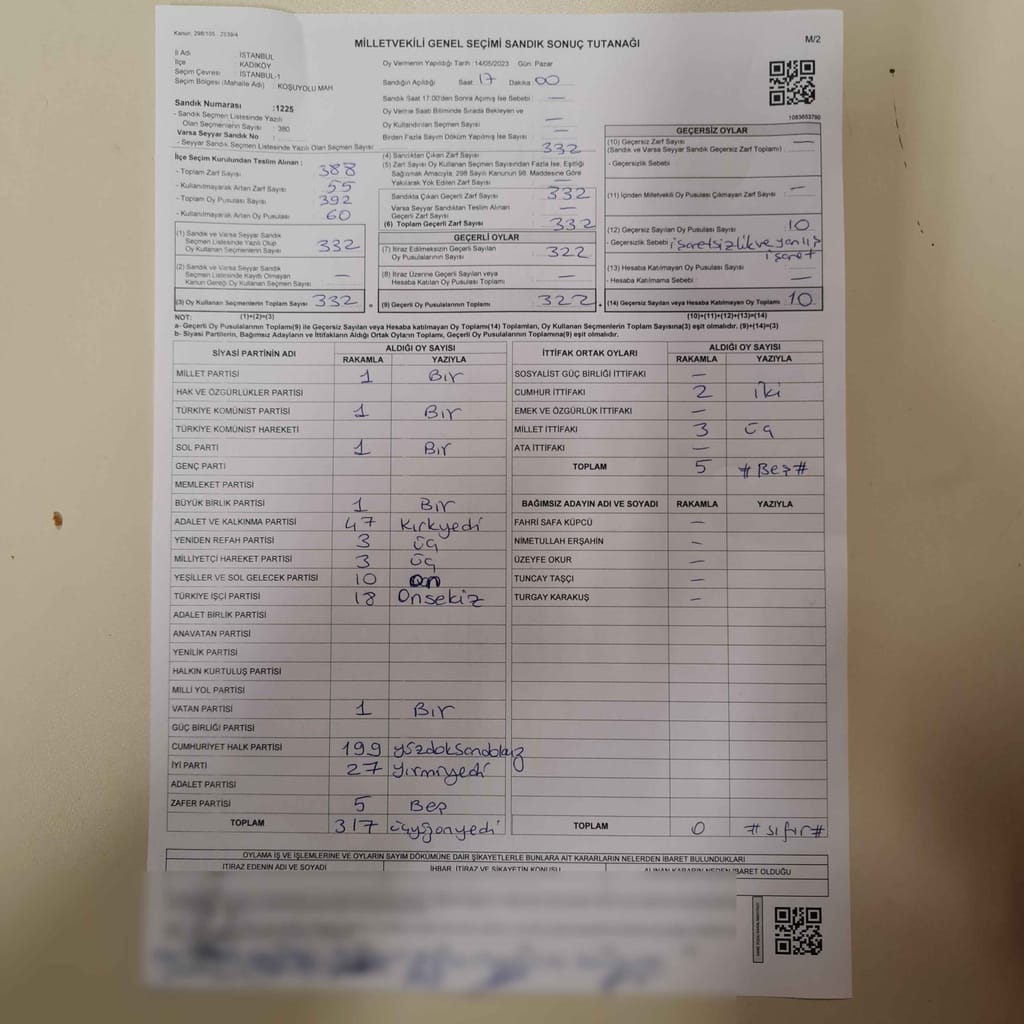 Kanun: 298/105 , 2839/4
MİLLETVEKİLİ GENEL SEÇİMİ SANDIK SONUÇ TUTANAĞI
M/2
İl Adı : İSTANBUL
İlçe : KADIKÖY
Seçim Çevresi : İSTANBUL-1
Seçim Bölgesi (Mahalle Adı) : KOŞUYOLU MAH
Sandık Numarası :1225
- Sandık Seçmen Listesinde Yazılı
Olan Seçmenlerin Sayısı : 380
Varsa Seyyar Sandık No :
- Seyyar Sandık Seçmen Listesinde Yazılı Olan Seçmen Sayısı:
İlçe Seçim Kurulundan Teslim Alınan ;
- Toplam Zarf Sayısı 388
- Kullanılmayarak Artan Zarf Sayısı 55
- Toplam Oy Pusulası Sayısı 392
- Kullanılmayarak Artan Oy Pusulası 60
(1) Sandık ve Varsa Seyyar Sandık
Seçmen Listesinde Yazılı Olup
Oy Kullanan Seçmenlerin Sayısı 332
(2) Sandık ve Varsa Seyyar Sandık
Seçmen Listesinde Kayıtlı Olmayan
Kanun Gereği Oy Kullanan Seçmen Sayısı —
(3) Oy Kullanan Seçmenlerin Toplam Sayısı 332
Oy Vermenin Yapıldığı Tarih : 14/05/2023 Gün: Pazar
Sandığın Açıldığı Saat 17 Dakika 00
Sandık Saat 17:00'den Sonra Açılmış İse Sebebi : —
Oy Verme Saati Bitiminde Sırada Bekleyen ve
Oy Kullandırılan Seçmen Sayısı —
Birden Fazla Sayım Döküm Yapılmış İse Sayısı —
(4) Sandıktan Çıkan Zarf Sayısı 332
(5) Zarf Sayısı Oy Kullanan Seçmen Sayısından Fazla İse, Eşitliği
Sağlamak Amacıyla, 298 Sayılı Kanunun 98. Maddesine Göre
Yakılarak Yok Edilen Zarf Sayısı —
Sandıkta Çıkan Geçerli Zarf Sayısı 332
Varsa Seyyar Sandıktan Teslim Alınan
Geçerli Zarf Sayısı —
(6) Toplam Geçerli Zarf Sayısı 332
GEÇERLİ OYLAR
(7) İtiraz Edilmeksizin Geçerli Sayılan
Oy Pusulalarının Sayısı 322
(8) İtiraz Üzerine Geçerli Sayılan veya
Hesaba Katılan Oy Pusulası Toplamı —
= (9) Geçerli Oy Pusulalarının Toplamı 322
1083853790
GEÇERSİZ OYLAR
(10) Geçersiz Zarf Sayısı —
(Sandık ve Varsa Seyyar Sandık Geçersiz Zarf Toplamı)
- Geçersizlik Sebebi
(11) İçinden Milletvekili Oy Pusulası Çıkmayan Zarf Sayısı —
(12) Geçersiz Sayılan Oy Pusulası Sayısı 10
- Geçersizlik Sebebi işaretsizlik ve yanlış
işaret
(13) Hesaba Katılmayan Oy Pusulası Sayısı
- Hesaba Katılmama Sebebi —
+ (14) Geçersiz Sayılan veya Hesaba Katılmayan Oy Toplamı 10
NOT: (1)+(2)=(3) (10)+(11)+(12)+(13)=(14)
a- Geçerli Oy Pusulalarının Toplamı(9) ile Geçersiz Sayılan veya Hesaba katılmayan Oy Toplamı(14) Toplamları, Oy Kullanan Seçmenlerin Toplam Sayısına(3) eşit olmalıdır. (9)+(14)=(3)
b- Siyasi Partilerin, Bağımsız Adayların ve İttifakların Aldığı Oyların Toplamı, Geçerli Oy Pusulalarının Toplamına(9) eşit olmalıdır.
SİYASİ PARTİNİN ADI ALDIĞI OY SAYISI
RAKAMLA YAZIYLA
MİLLET PARTİSİ 1 Bir
HAK VE ÖZGÜRLÜKLER PARTİSİ
TÜRKİYE KOMÜNİST PARTİSİ 1 Bir
TÜRKİYE KOMÜNİST HAREKETİ
SOL PARTİ 1 Bir
GENÇ PARTİ
MEMLEKET PARTİSİ
BÜYÜK BİRLİK PARTİSİ 1 Bir
ADALET VE KALKINMA PARTİSİ 47 Kırkyedi
YENİDEN REFAH PARTİSİ 3 üç
MİLLİYETÇİ HAREKET PARTİSİ 3 üç
YEŞİLLER VE SOL GELECEK PARTİSİ 10 on
TÜRKİYE İŞÇİ PARTİSİ 18 Onsekiz
ADALET BİRLİK PARTİSİ
ANAVATAN PARTİSİ
YENİLİK PARTİSİ
HALKIN KURTULUŞ PARTİSİ
MİLLİ YOL PARTİSİ
VATAN PARTİSİ 1 Bir
GÜÇ BİRLİĞİ PARTİSİ
CUMHURİYET HALK PARTİSİ 199
İYİ PARTİ 27 Yirmiyedi
ADALET PARTİSİ
ZAFER PARTİSİ 5 Beş
TOPLAM 317 üçyüzonyedi
İTTİFAK ORTAK OYLARI ALDIĞI OY SAYISI
RAKAMLA YAZIYLA
SOSYALİST GÜÇ BİRLİĞİ İTTİFAKI —
CUMHUR İTTİFAKI 2 iki
EMEK VE ÖZGÜRLÜK İTTİFAKI —
MİLLET İTTİFAKI 3 üç
ATA İTTİFAKI —
TOPLAM 5 #Beş#
BAĞIMSIZ ADAYIN ADI VE SOYADI RAKAMLA YAZIYLA
FAHRİ SAFA KÜPCÜ —
NİMETULLAH ERŞAHİN —
ÜZEYFE OKUR —
TUNCAY TAŞÇI —
TURGAY KARAKUŞ —
TOPLAM 0 #sıfır#
OYLAMA İŞ VE İŞLEMLERİNE VE OYLARIN SAYIM DÖKÜMÜNE DAİR ŞİKAYETLERLE BUNLARA AİT KARARLARIN NELERDEN İBARET BULUNDUKLARI
İTİRAZ EDENİN ADI VE SOYADI İHBAR, İTİRAZ VE ŞİKAYETİN KONUSU ALINAN KARARIN NEDEN İBARET OLDUĞU